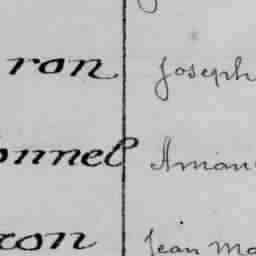 ron Joseph
onnel Aman
ron Jean Ma